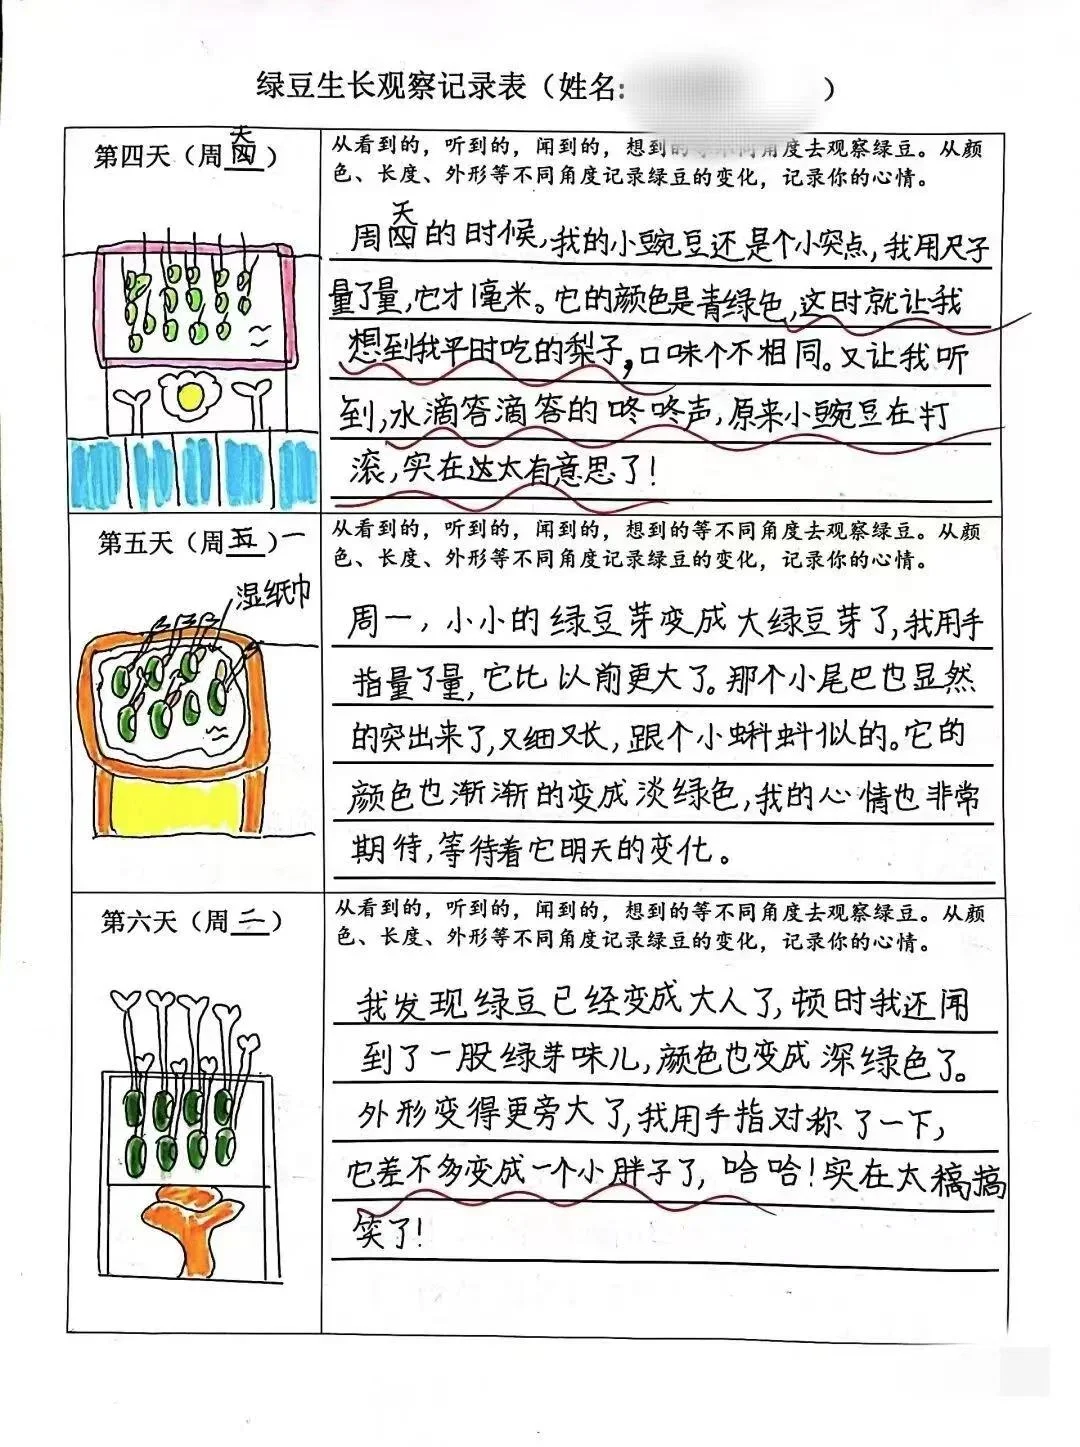 绿豆生长观察记录表（姓名:　　　）
第四天（周天）
从看到的，听到的，闻到的，想到的等不同角度去观察绿豆。从颜
色、长度、外形等不同角度记录绿豆的变化，记录你的心情。
周天的时候，我的小豌豆还是个小突点，我用尺子
量了量，它才1毫米。它的颜色是青绿色，这时就让我
想到我平时吃的梨子，口味个不相同。又让我听
到，水滴答滴答的咚咚声，原来小豌豆在打
滚，实在达太有意思了！
第五天（周五）一
湿纸巾
从看到的，听到的，闻到的，想到的等不同角度去观察绿豆。从颜
色、长度、外形等不同角度记录绿豆的变化，记录你的心情。
周一，小小的绿豆芽变成大绿豆芽了，我用手
指量了量，它比以前更大了。那个小尾巴也显然
的突出来了，又细又长，跟个小蝌蚪似的。它的
颜色也渐渐的变成淡绿色，我的心情也非常
期待，等待着它明天的变化。
第六天（周二）
从看到的，听到的，闻到的，想到的等不同角度去观察绿豆。从颜
色、长度、外形等不同角度记录绿豆的变化，记录你的心情。
我发现绿豆已经变成大人了，顿时我还闻
到了一股绿芽味儿，颜色也变成深绿色了。
外形变得更旁大了，我用手指对称了一下，
它差不多变成一个小胖子了，哈哈！实在太稿搞
笑了！